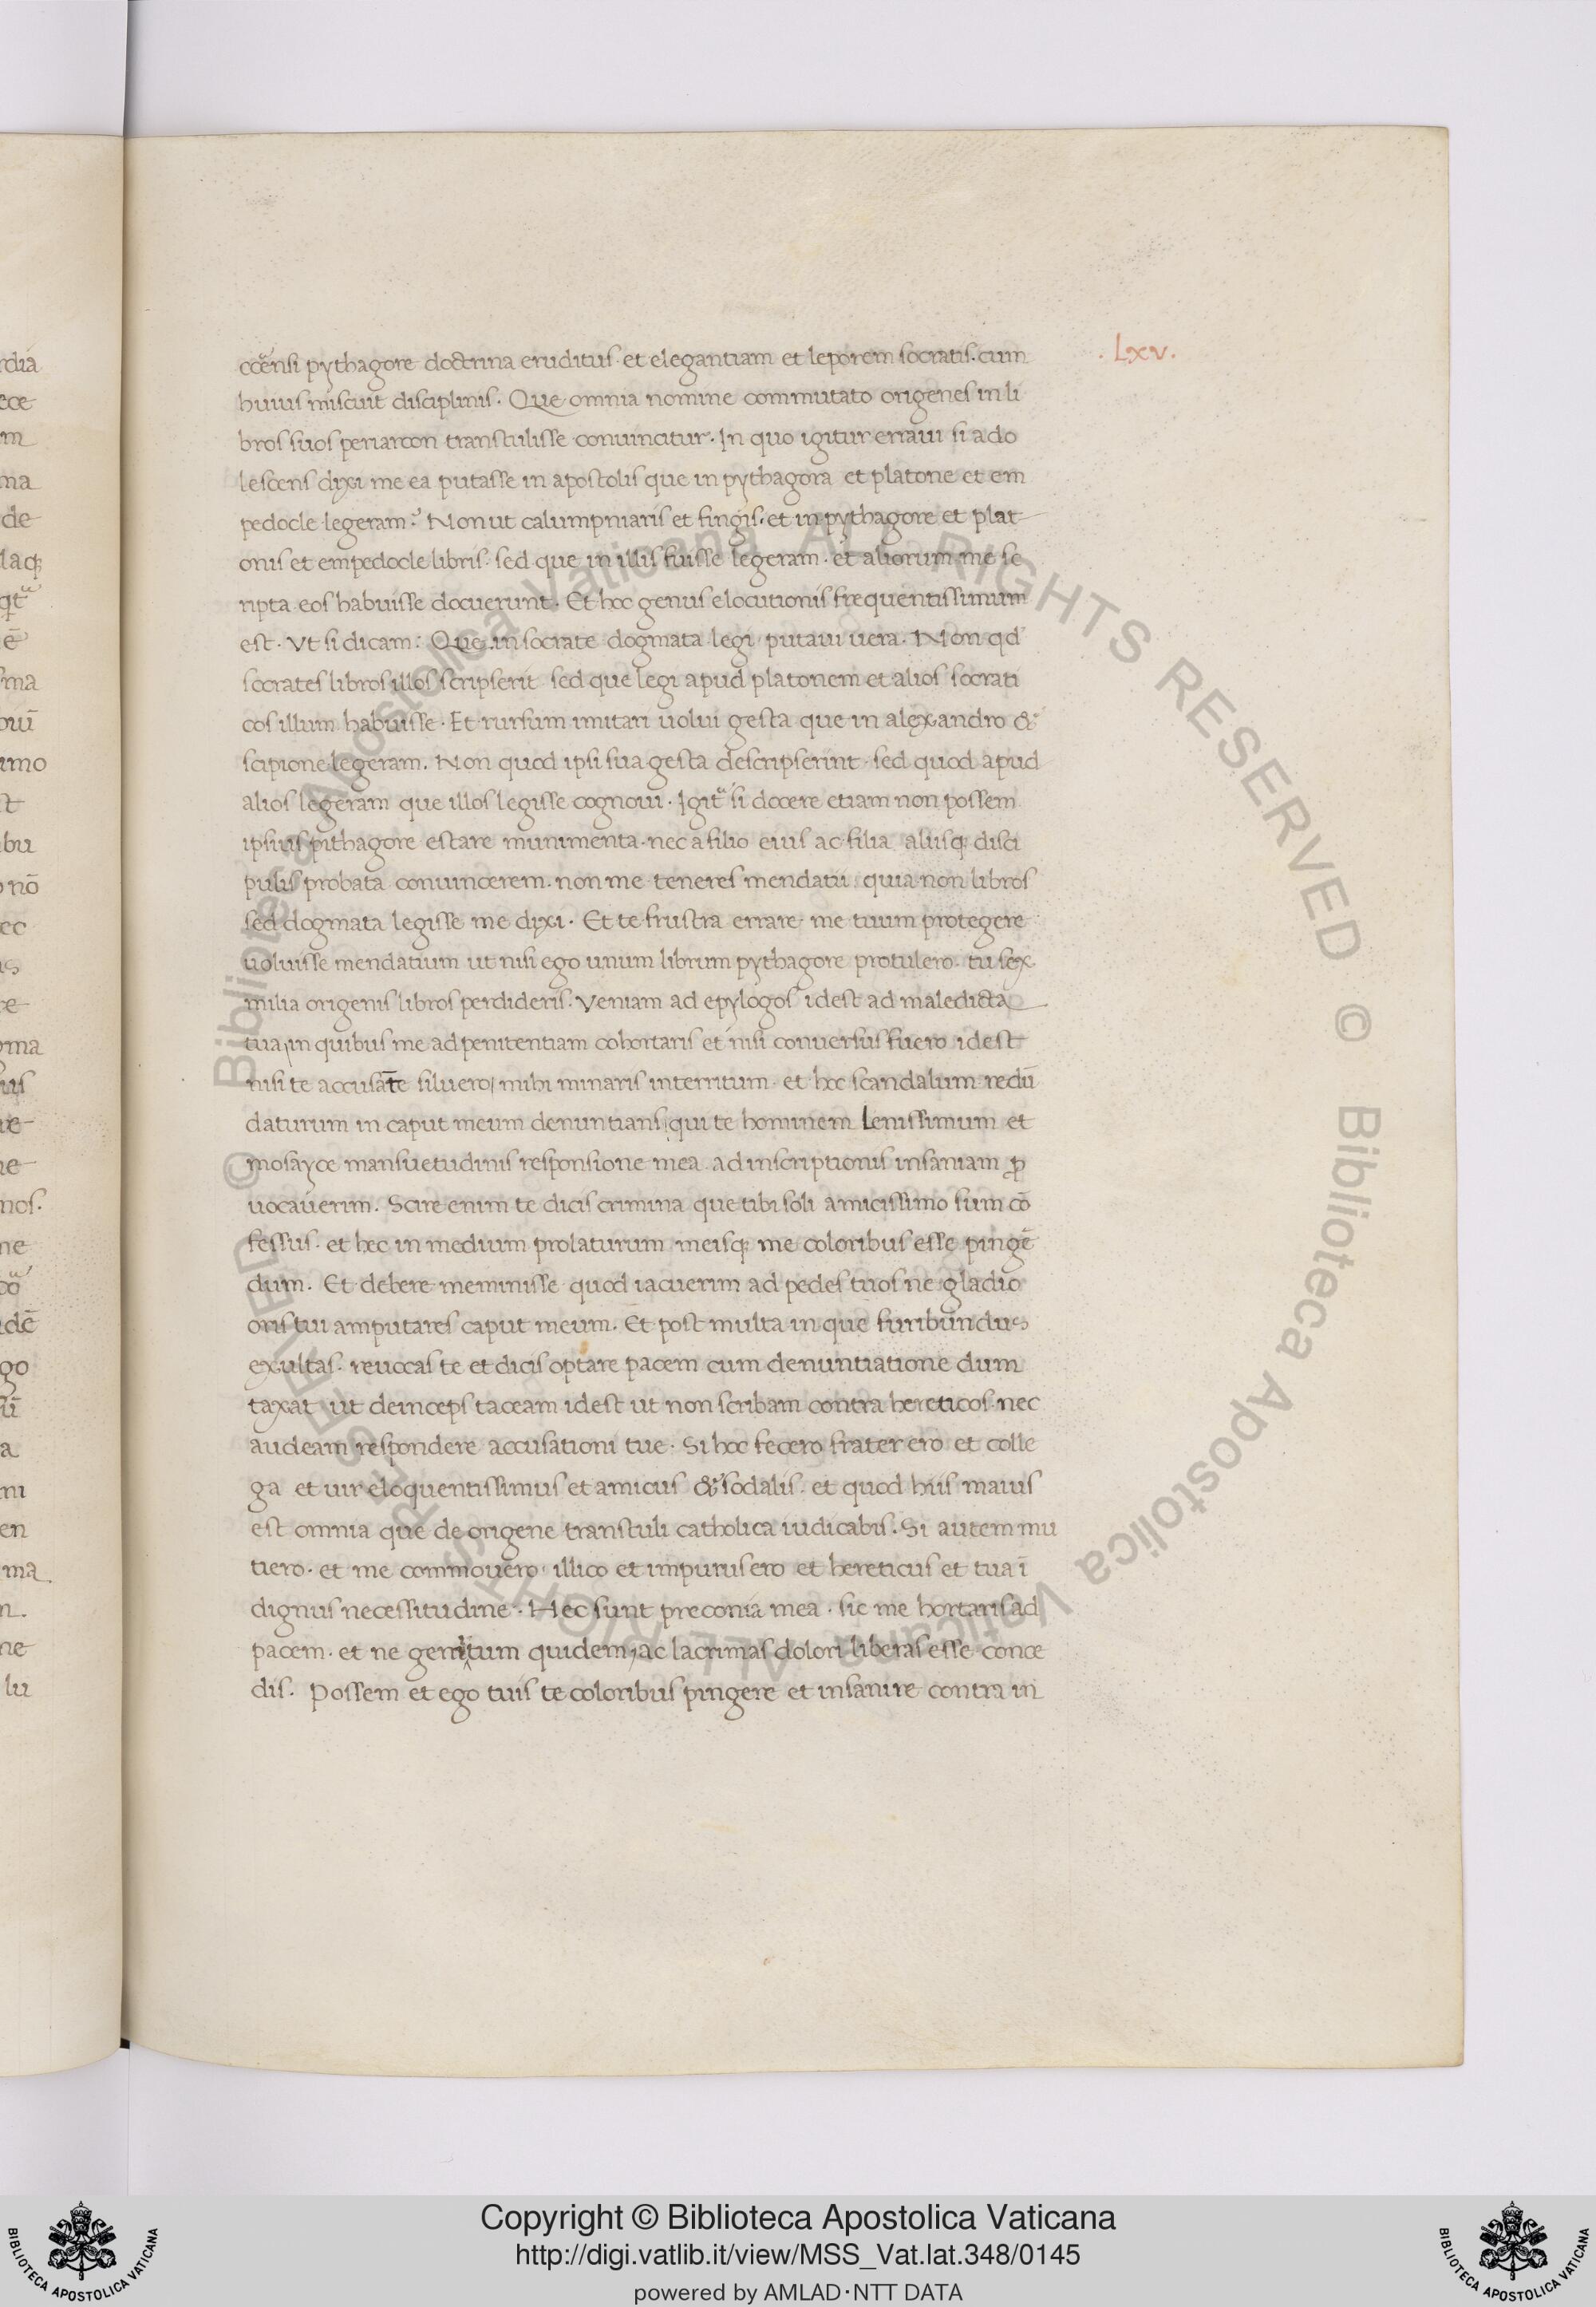 .Lxv.
ccensi pythagore doctrina eruditus. et elegantiam et leporem socratis. cum
huius miscuit disciplinis. Que omnia nomine commutato origenes in li
bros suos periarcon transtulisse conuincitur. In quo igitur erraui si ado
lescens dixi me ea putasse in apostolis que in pythagora et platone et em
pedocle legeram? Non ut calumpniaris et fingis. et in pythagore et plat
onis et empedocle libris. sed que in illis fuisse legeram. et aliorum me sc
ripta eos habuisse docuerunt. Et hoc genus elocutionis frequentissimum
est. Vt si dicam: Que in socrate dogmata legi putaui uera. Non qd
socrates libros illos scripserit sed que legi apud platonem et alios socrati
cos illum habuisse. Et rursum imitari uolui gesta que in alexandro &
scipione legeram. Non quod ipsi sua gesta descripserint. sed quod apud
alios legeram que illos legisse cognoui. Igitᵃ si docere etiam non possem
ipsius pithagore estare munimenta. nec a filio eius ac filia aliisq; disci
pulis probata conuincerem. non me teneres mendatii: quia non libros
sed dogmata legisse me dixi. Et te frustra errare me tuum protegere
uoluisse mendatium ut nisi ego unum librum pythagore protulero. tu sex
milia origenis libros perdideris. Veniam ad epylogos idest ad maledicta
tua, in quibus me ad penitentiam cohortaris et nisi conuersus fuero idest
nisi te accusāte siluero, mihi minaris interritum. et hoc scandalum redū
daturum in caput meum denuntians, qui te hominem Lenissimum et
mosayce mansuetudinis responsione mea ad inscriptionis insaniam ꝓ
uocauerim. Scire enim te dicis crimina que tibi soli amicissimo sum cō
fessus. et hec in medium prolaturum meisq; me coloribus esse pingē
dum. Et debere meminisse quod iacuerim ad pedes tuos ne gladio
oris tui amputares caput meum. Et post multa in que furibundus
exultas. reuocas te et dicis optare pacem cum denuntiatione dum
taxat ut deinceps taceam idest ut non scribam contra hereticos. nec
audeam respondere accusationi tue. Si hoc fecero frater ero et colle
ga et uir eloquentissimus et amicus & sodalis. et quod hiis maius
est omnia que de origene transtuli catholica iudicabis. Si autem mu
tiero. et me commouero. illico et impurus ero et hereticus et tua ī
dignus necessitudine. Hec sunt preconia mea. sic me hortaris ad
pacem. et ne gemitum quidem, ac lacrimas dolori liberas esse conce
dis. Possem et ego tuis te coloribus pingere et insanire contra in
© Biblioteca Apostolica Vaticana ALL RIGHTS RESERVED
© Biblioteca Apostolica Vaticana ALL RIGHTS RESERVED
Copyright © Biblioteca Apostolica Vaticana
http://digi.vatlib.it/view/MSS_Vat.lat.348/0145
powered by AMLAD·NTT DATA
BIBLIOTECA APOSTOLICA VATICANA
BIBLIOTECA APOSTOLICA VATICANA